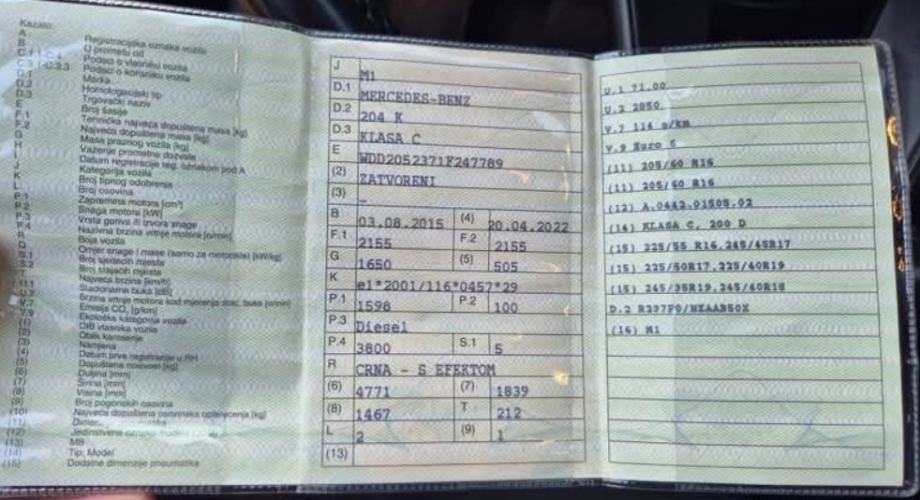 Kazalo:
A Registracijska oznaka vozila
B U prometu od
Podaci o vlasniku vozila
C.3.1-C.3.3 Podaci o korisniku vozila
D.1 Marka
D.2 Homologacijski tip
D.3 Trgovački naziv
E Broj šasije
F.1 Tehnička najveća dopuštena masa [kg]
F.2 Najveća dopuštena masa [kg]
G Masa praznog vozila [kg]
H Važenje prometne dozvole
I Datum registracije reg. oznakom pod A
J Kategorija vozila
K Broj tipnog odobrenja
L Broj osovina
P.1 Zapremina motora [cm³]
P.2 Snaga motora [kW]
P.3 Vrsta goriva ili izvora snage
P.4 Nazivna brzina vrtnje motora [o/min]
R Boja vozila
Q Omjer snage i mase (samo za motocikle) [kW/kg]
S.1 Broj sjedećih mjesta
S.2 Broj stajaćih mjesta
T Najveća brzina [km/h]
U.1 Stacionarna buka [dB]
U.2 Brzina vrtnje motora kod mjerenja stac. buke [o/min]
V.7 Emisija CO₂ [g/km]
V.9 Ekološka kategorija vozila
(1) OIB vlasnika vozila
(2) Oblik karoserije
(3) Namjena
(4) Datum prve registracije u RH
(5) Dopuštena nosivost [kg]
(6) Duljina [mm]
(7) Širina [mm]
(8) Visina [mm]
(9) Broj pogonskih osovina
(10) Najveća dopuštena osovinska opterećenja [kg]
(11)
(12) Jedinstvena oznaka modela
(13) MB
(14) Tip, Model
(15) Dodatne dimenzije pneumatika
J M1
D.1 MERCEDES-BENZ
D.2 204 K
D.3 KLASA C
E WDD2052371F247789
(2) ZATVORENI
(3) -
B 03.08.2015 (4) 20.04.2022
F.1 2155 F.2 2155
G 1650 (5) 505
K e1*2001/116*0457*29
P.1 1598 P.2 100
P.3 Diesel
P.4 3800 S.1 5
R CRNA - S EFEKTOM
(6) 4771 (7) 1839
(8) 1467 T 212
L 2 (9) 1
(13)
U.1 71.00
U.2 2850
V.7 114 g/km
V.9 Euro 6
(11) 205/60 R16
(11) 205/60 R16
(12) A.0442.01505.02
(14) KLASA C, 200 D
(15) 225/55 R16,245/45R17
(15) 225/50R17,225/40R19
(15) 245/35R19,245/40R18
D.2 R237F0/NZAAB50X
(16) M1